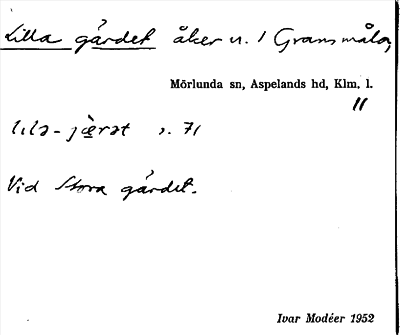 Lilla gärdet åker n. 1 Gransmåla,
Mörlunda sn, Aspelands hd, Klm. l.
11
lılə-jæ̀rət s. 71
Vid Stora gärdet.
Ivar Modéer 1952